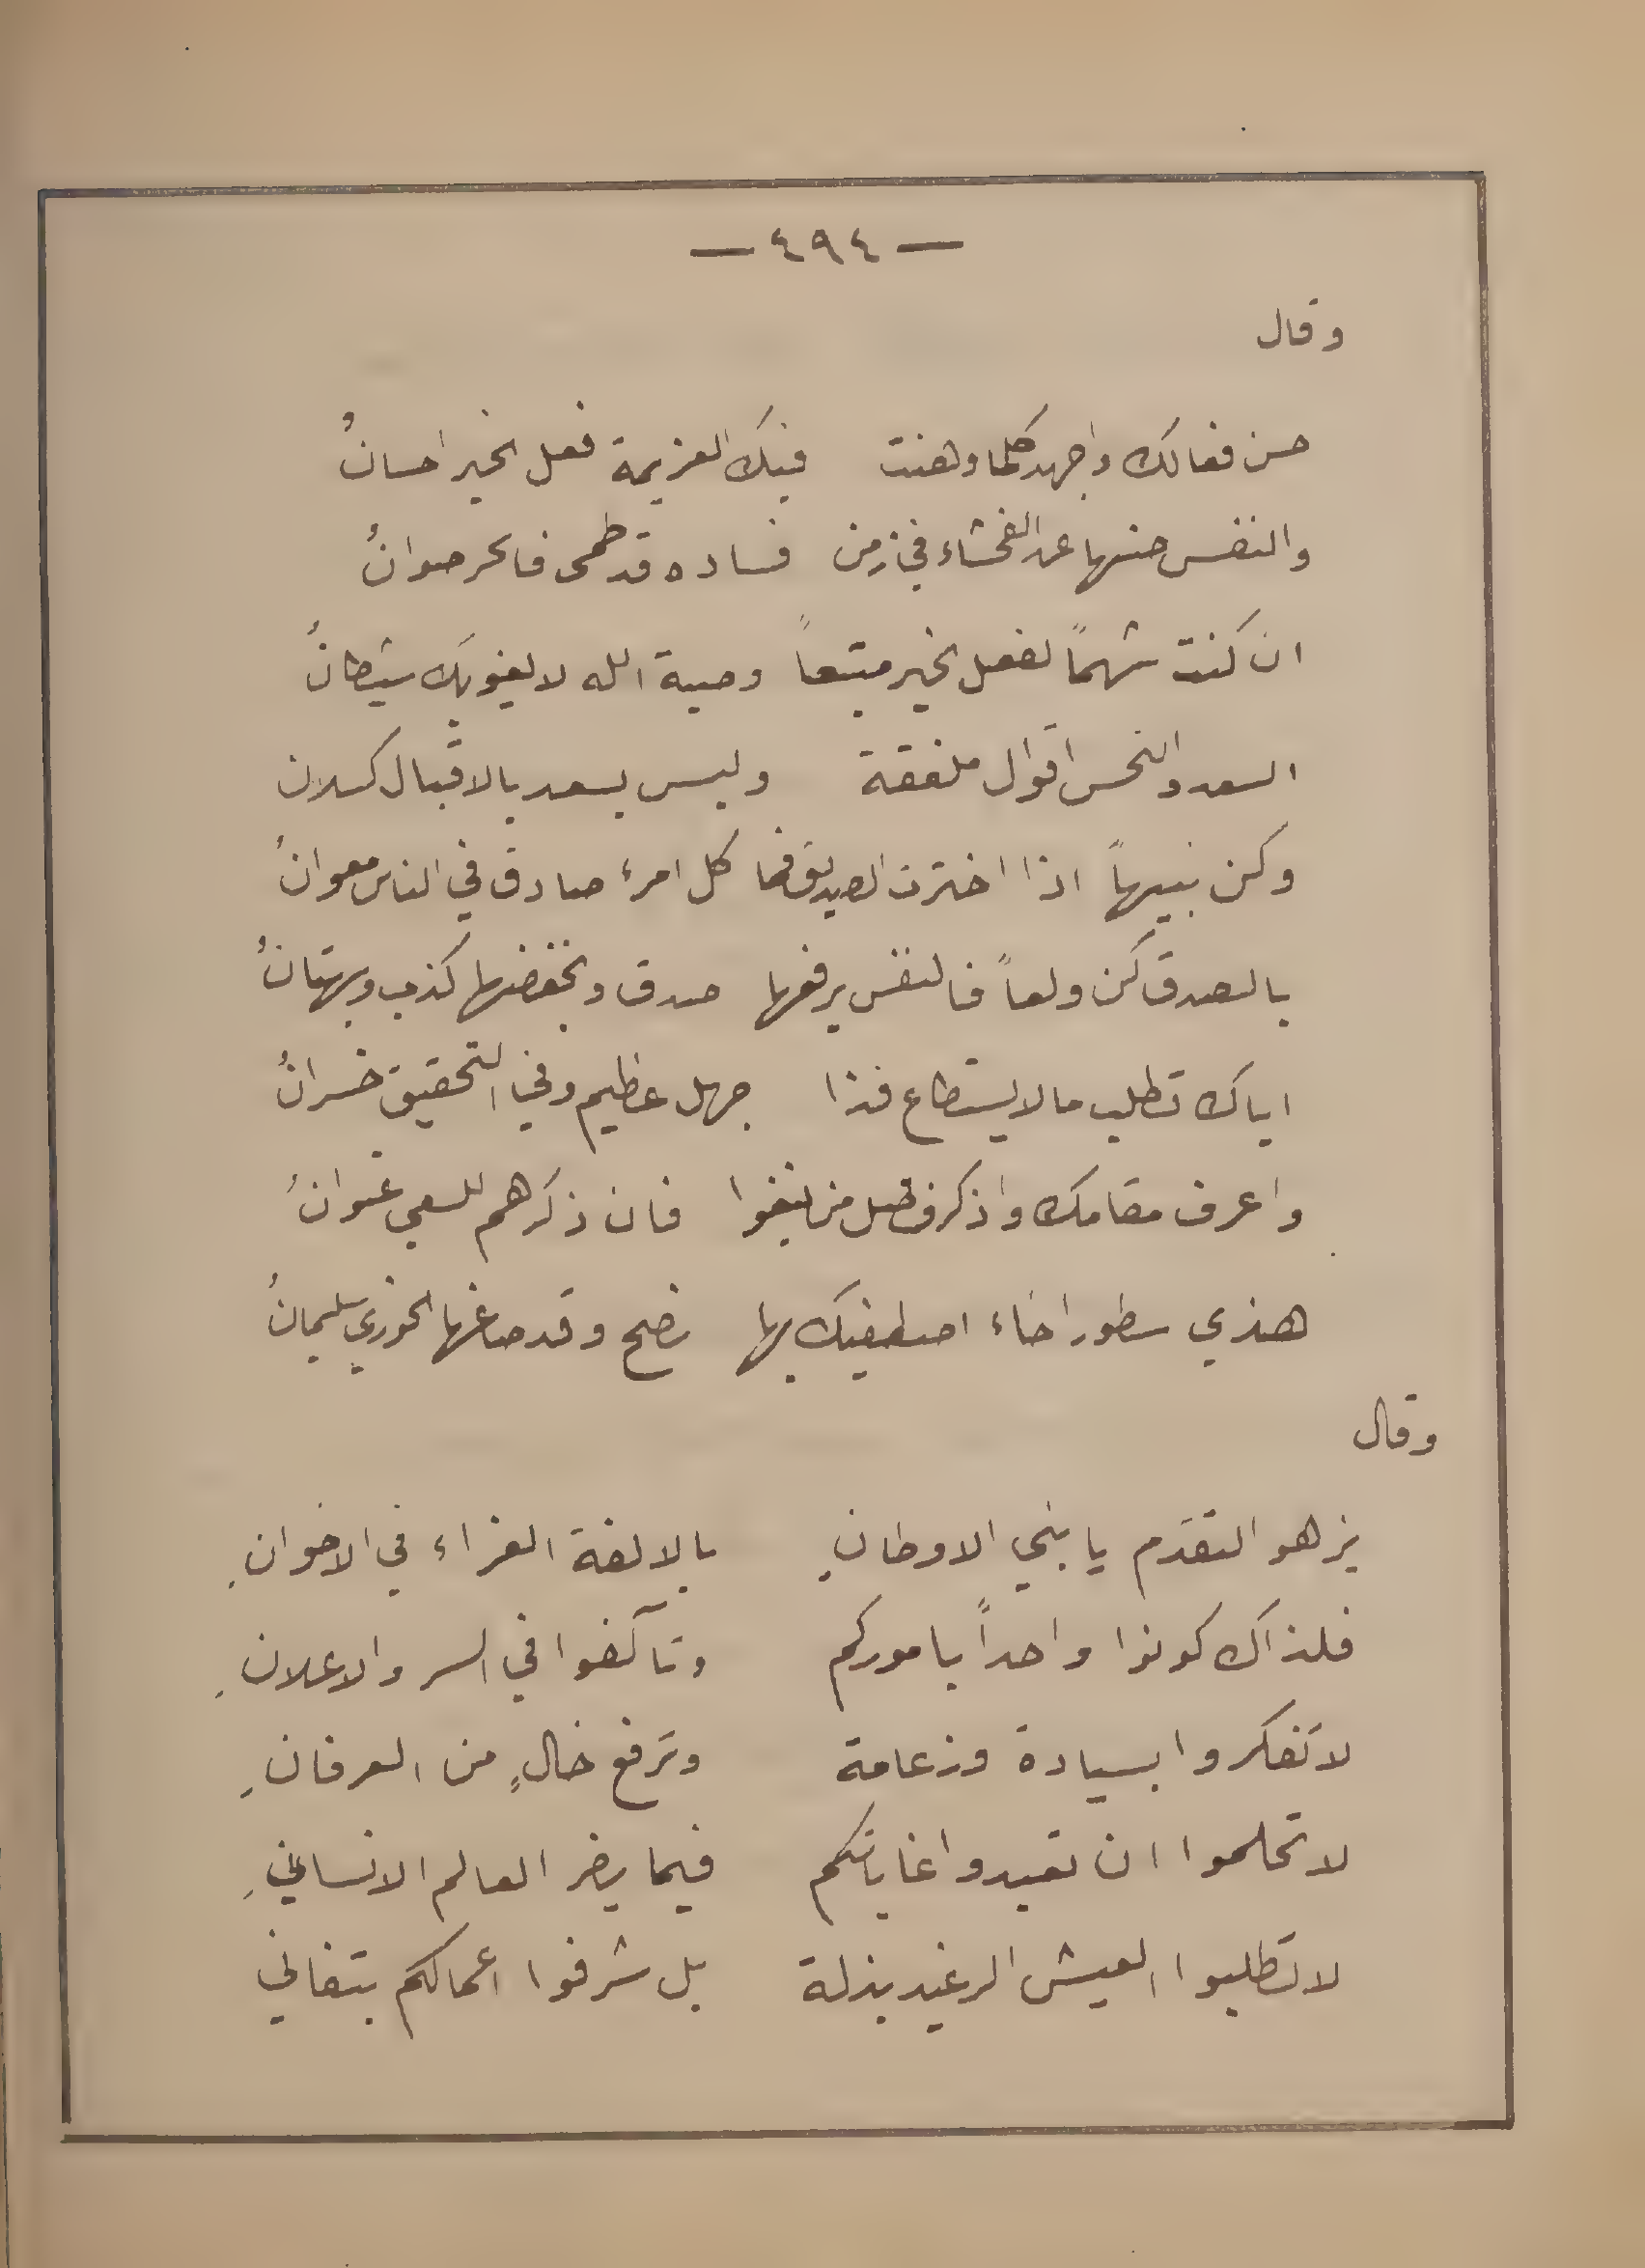 — ٤٩٤ —
وقال
حسن فعالك واجهد كلما وهنت فيك العزيمة فعل الخير احسانُ
والنفس صنها عن الفحشاء في زمن فساده قد طمى فالحر صوانُ
ان كنت شهماً لفعل الخير متبعاً وصية الله لا يغويك شيطانُ
السعد والنحس اقوال ملفقة وليس يسعد بالاقبال كسلان
وكن نبيهاً اذا اخترت الصديق فما كل امرء صادق في الناس معوانُ
بالصدق كن ولعاً فالنفس يرفعها صدق ويخفضها كذب وبهتانُ
اياك تطلب ما لا يستطاع فذا جهل عظيم وفي التحقيق خسرانُ
واعرف مقامك واذكر فضل من نبغوا فان ذكرهم للسعي عنوانُ
هذي سطور اخاء اصطفيك بها نصح وقد صاغها الخوري سليمانُ
وقال
يزهو التقدَم يا بني الاوطانِ بالالفة الغراء في الاخوانِ
فلذاك كونوا واحداً باموركم وتآلفوا في السر والاعلانِ
لا تَفكروا بسيادة وزعامة وتَرفع خالٍ من العرفانِ
لا تحلموا ان تعيدوا غاياتكم فيما يضر العالم الانسانيِ
لا تطلبوا العيش الرغيد بذلة بل شرفوا اعمالكم بتفاني